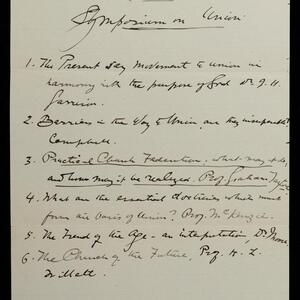 Symposium on Union
1. The Present Day Movement to union in
harmony with the purpose of God Dr J. H.
Garrison.
2. Barriers in the Way to Union, are they insuperable?
Campbell.
3. Practical Church Federation. What may it do,
and how may it be realized. Prof. Graham Taylor
4. What are the essential doctrines which must
form air basis of Union? Prof. McKenzie.
5. The Trend of the Age - an interpretation, Dr
6. The Church of the Future, Prof. H. L.
Willett.